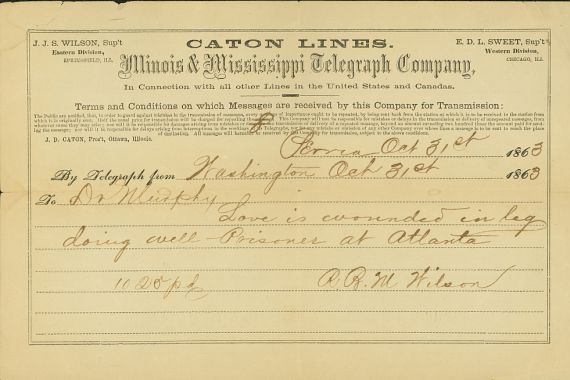 J. J. S. WILSON, Sup't
Eastern Division,
SPRINGFIELD, ILL.
CATON LINES.
E. D. L. SWEET, Sup't
Western Division,
CHICAGO, ILL.
Illinois & Mississippi Telegraph Company,
In Connection with all other Lines in the United States and Canadas.
Terms and Conditions on which Messages are received by this Company for Transmission:
J. D. CATON, Pres't, Ottawa, Illinois.
Peoria Oct 31st 1863
By Telegraph from Washington Oct 31st 1863
To Dr Murphy
Love is wounded in leg
doing well - Prisoner at Atlanta
10 25 pd R. R. M Wilson